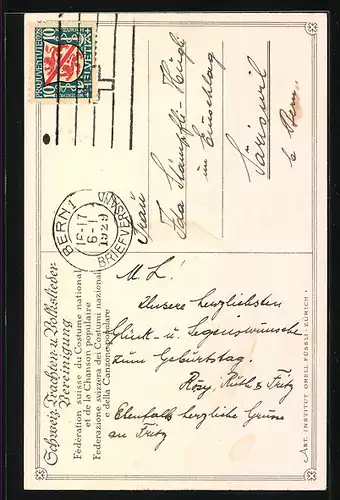 PRO JUVENTUTE 1928
10 10
HELVETIA
BERN 1
16-17
6-I
1929
BRIEFVERSAND
Schweiz. Trachten- u. Volkslieder-
Vereinigung
Fédération suisse du Costume national
et de la Chanson populaire
Federazione svizzera dei Costumi nazionali
e della Canzone popolare
Frau
Ida Stämpfli-Hügli
im Einschlag
Säriswil
b. Bern
M. L!
Unsere herzlichsten
Glück- u. Segenswünsche
zum Geburtstag.
Rösy, Ruth & Fritz
Ebenfalls herzliche Grüsse
an Fritz
ART. INSTITUT ORELL FÜSSLI, ZÜRICH.